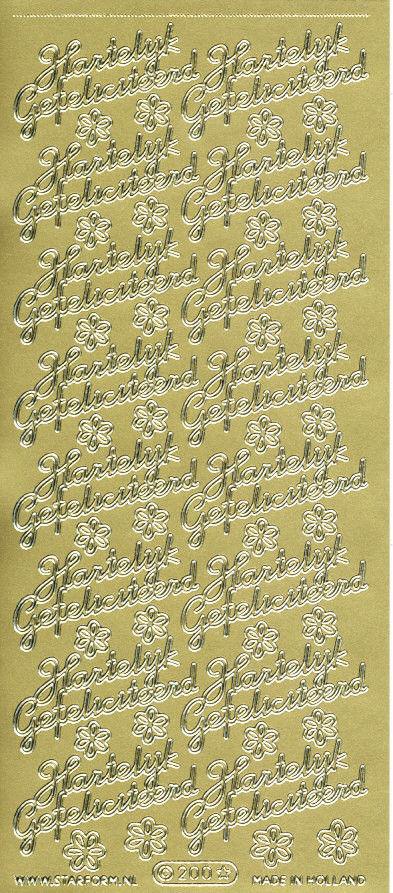 Hartelijk Hartelijk
Gefeliciteerd Gefeliciteerd
Hartelijk Hartelijk
Gefeliciteerd Gefeliciteerd
Hartelijk Hartelijk
Gefeliciteerd Gefeliciteerd
Hartelijk Hartelijk
Gefeliciteerd Gefeliciteerd
Hartelijk Hartelijk
Gefeliciteerd Gefeliciteerd
Hartelijk Hartelijk
Gefeliciteerd Gefeliciteerd
Hartelijk Hartelijk
Gefeliciteerd Gefeliciteerd
Hartelijk Hartelijk
Gefeliciteerd Gefeliciteerd
WWW.STARFORM.NL © 200 ☆ MADE IN HOLLAND